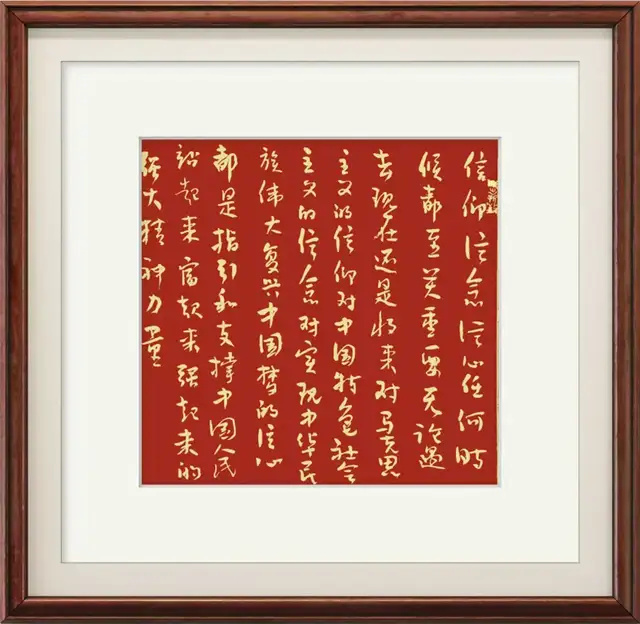 信仰信念信心任何时
候都至关重要无论过
去现在还是将来对马克思
主义的信仰对中国特色社会
主义的信念对实现中华民
族伟大复兴中国梦的信心
都是指引和支撑中国人民
站起来富起来强起来的
强大精神力量